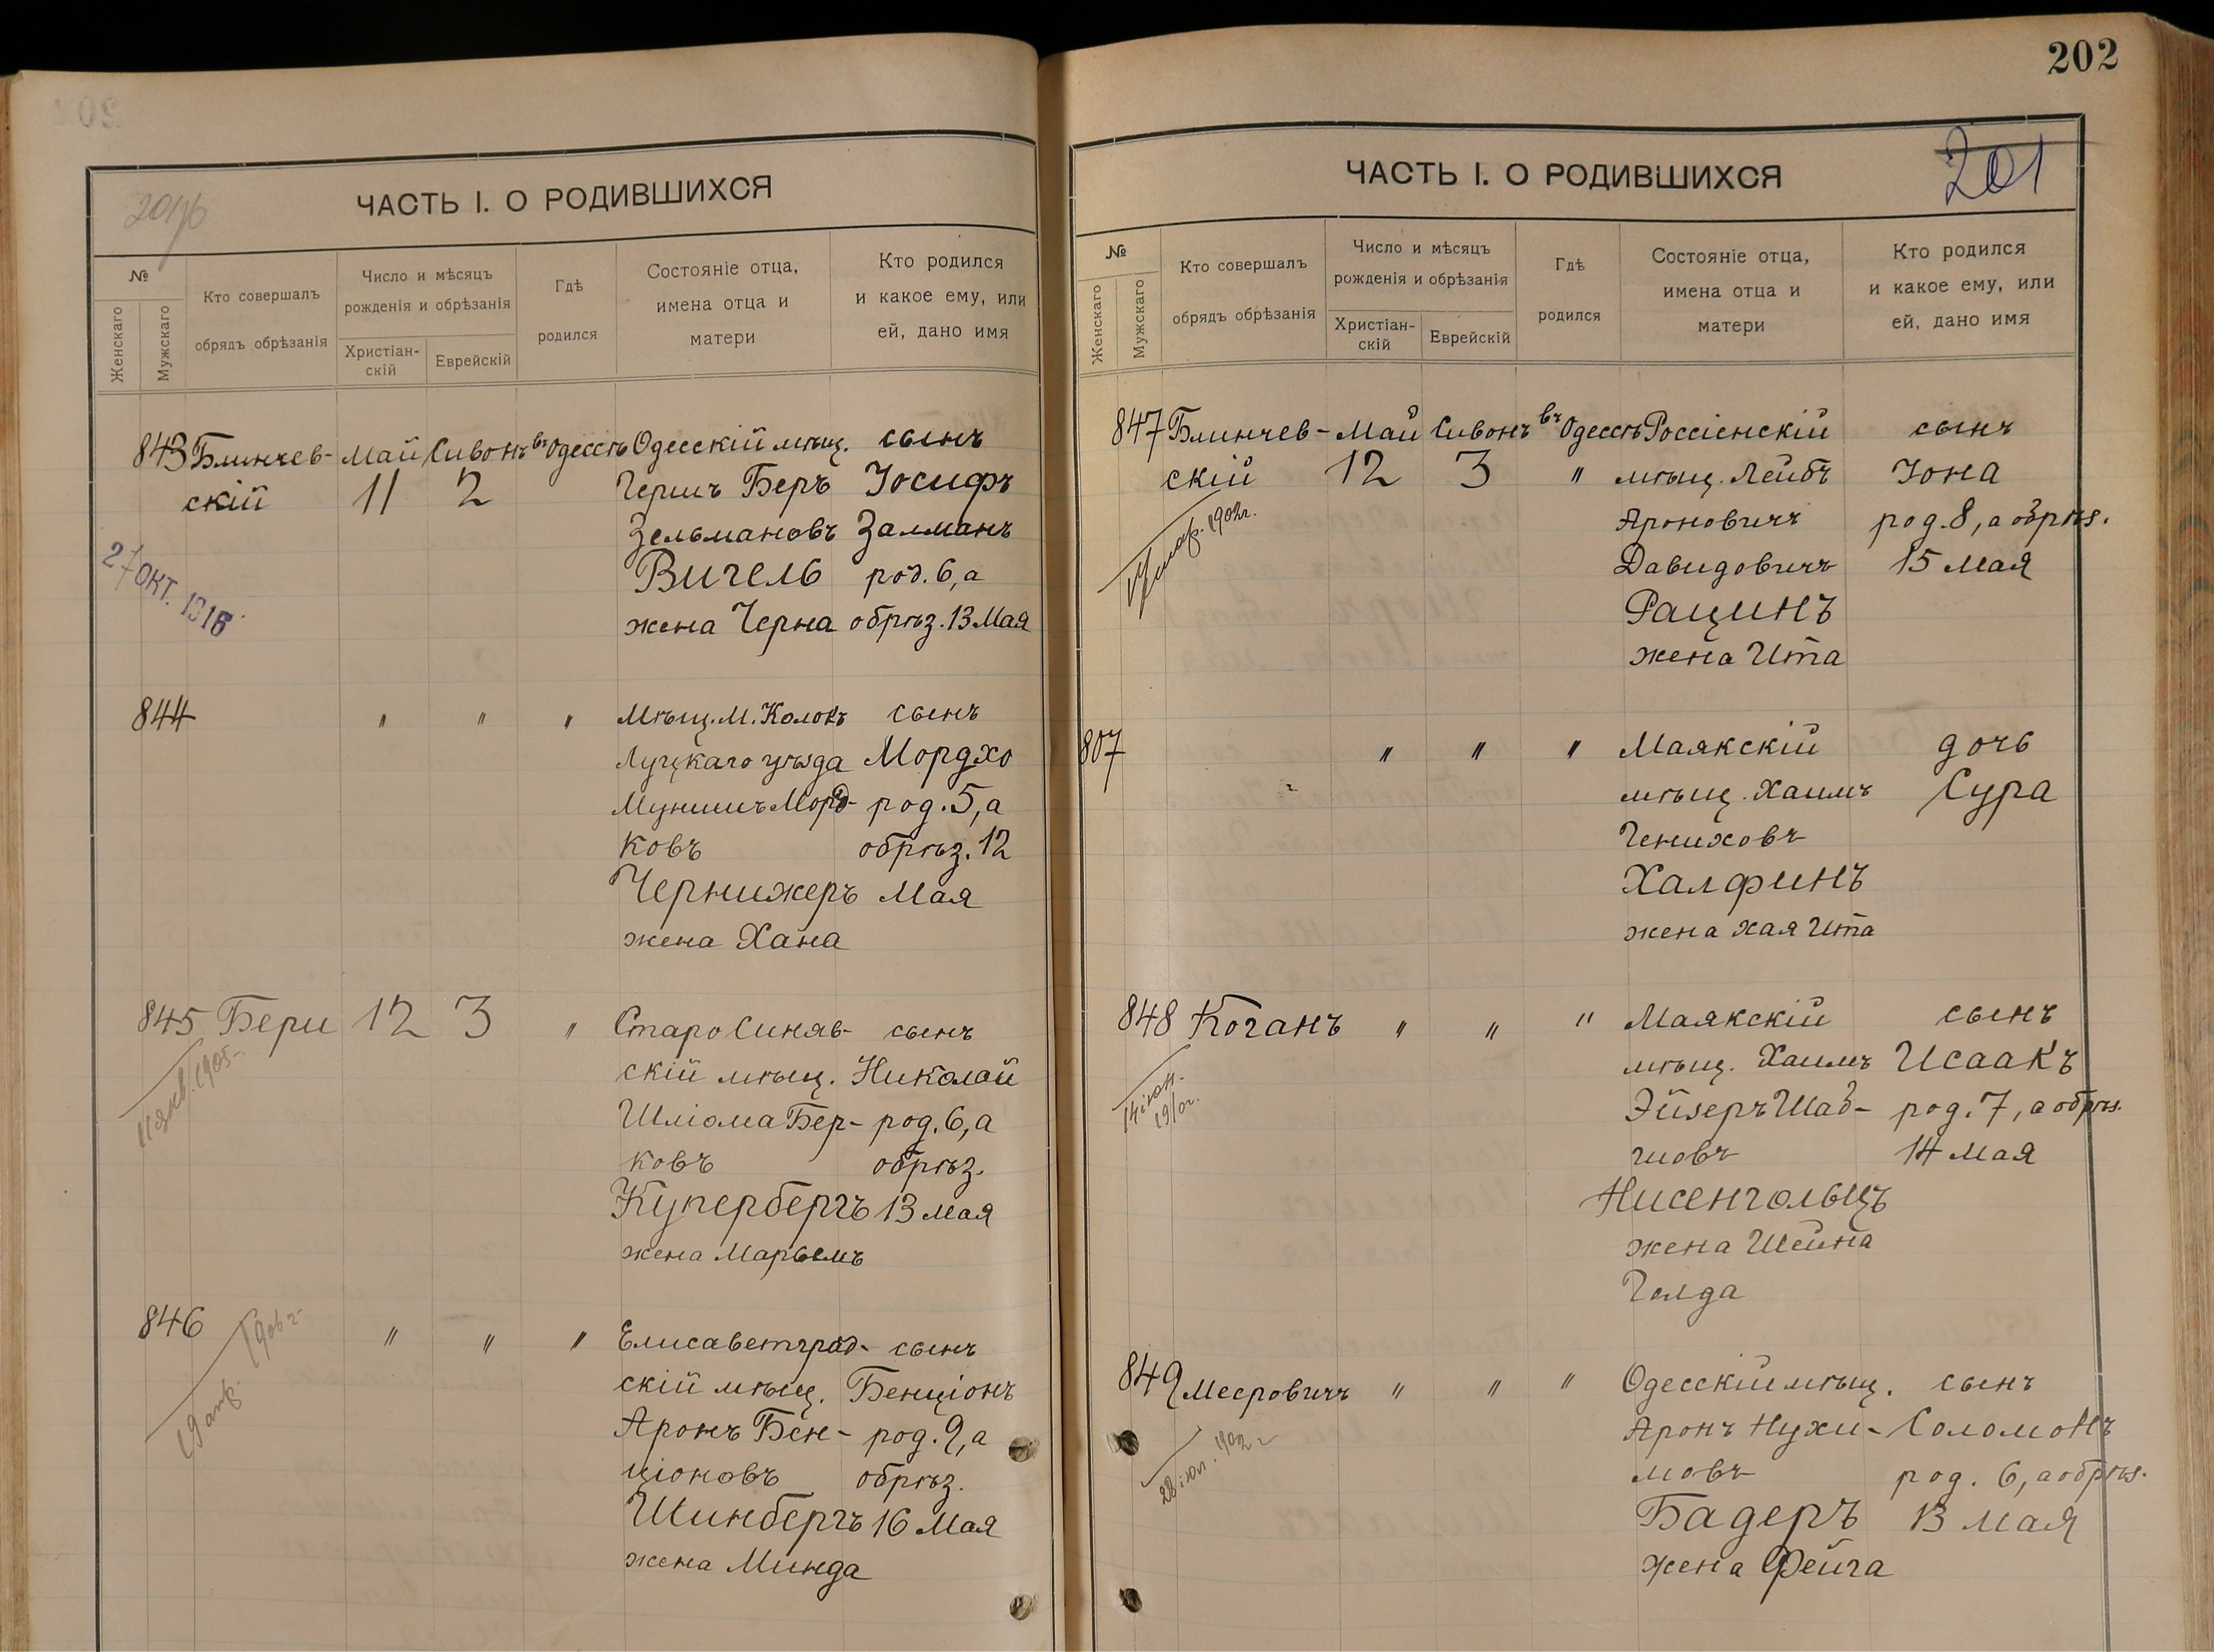 202
201
ЧАСТЬ I. О РОДИВШИХСЯ
№
Женскаго
Мужскаго
Кто совершалъ
обрядъ обрѣзанія
Число и мѣсяцъ
рожденія и обрѣзанія
Христіан-
скій
Еврейскій
Гдѣ
родился
Состояніе отца,
имена отца и
матери
Кто родился
и какое ему, или
ей, дано имя
843 Блинчев- Май Сивонъ въ Одессѣ Одесскій мѣщ. сынъ
скій 11 2 Гершъ Беръ Іосифъ
Зельмановъ Залманъ
Вигель род. 6, а
жена Черна обрѣз. 13 Мая
27 ОКТ. 1916
844 " " " Мѣщ. м. Колокъ сынъ
Луцкаго уѣзда Мордхо
Мунишъ Морд- род. 5, а
ковъ обрѣз. 12
Чернижеръ Мая
жена Хана
845 Бери 12 3 " Старо Синяв- сынъ
скій мѣщ. Николай
Шліома Бер- род. 6, а
ковъ обрѣз.
Куперберъ 13 мая
жена Марьемъ
11 янв. 1905
846 " " " Елисаветград- сынъ
скій мѣщ. Бенціонъ
Аронъ Бен- род. 9, а
ціоновъ обрѣз.
Шинбергъ 16 Мая
жена Минда
ЧАСТЬ I. О РОДИВШИХСЯ
№
Женскаго
Мужскаго
Кто совершалъ
обрядъ обрѣзанія
Число и мѣсяцъ
рожденія и обрѣзанія
Христіан-
скій
Еврейскій
Гдѣ
родился
Состояніе отца,
имена отца и
матери
Кто родился
и какое ему, или
ей, дано имя
847 Блинчев- Май Сивонъ въ Одессѣ Россіенскій сынъ
скій 12 3 " мѣщ. Лейбъ Іона
Ароновичъ род. 8, а обрѣз.
Давидовичъ 15 мая
Рацинъ
жена Ита
1902г.
807 " " " Маякскій дочь
мѣщ. Хаимъ Сура
Гениховъ
Халфинъ
жена Хая Ита
848 Коганъ " " " Маякскій сынъ
мѣщ. Хаимъ Исаакъ
Эйзеръ Шаб- род. 7, а обрѣз.
шовъ 14 мая
Нисенгольцъ
жена Шейна
Голда
849 Мееровичъ " " " Одесскій мѣщ. сынъ
Аронъ Нухи- Соломонъ
мовъ род. 6, а обрѣз.
Бадеръ 13 мая
жена Фейга
28 іюл. 1902 г